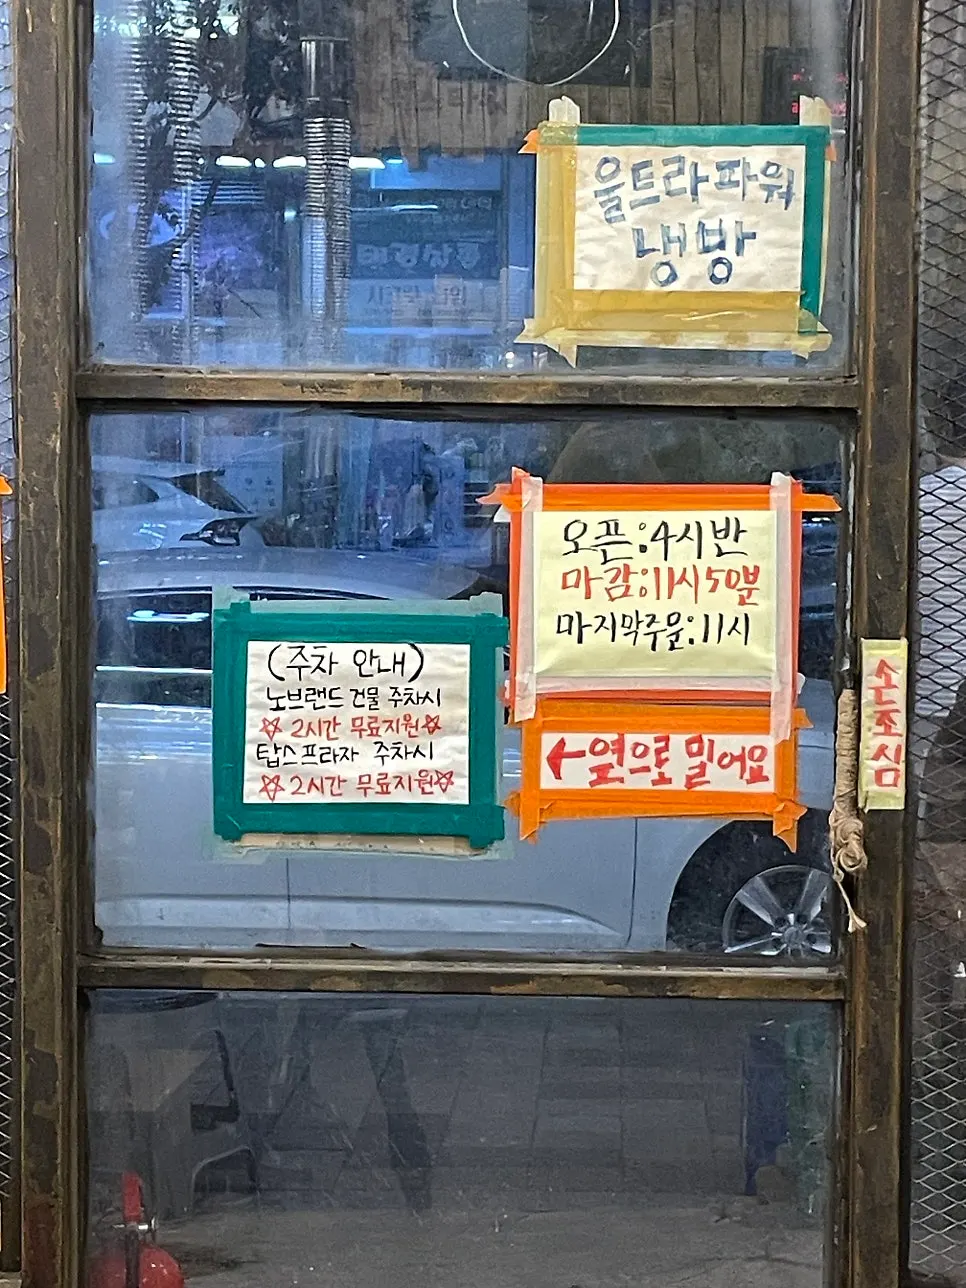 울트라파워
냉방
오픈:4시반
마감:11시50분
마지막주문:11시
(주차 안내)
노브랜드 건물 주차시
☆ 2시간 무료지원☆
탑스프라자 주차시
☆ 2시간 무료지원☆
←옆으로 밀어요
손조심